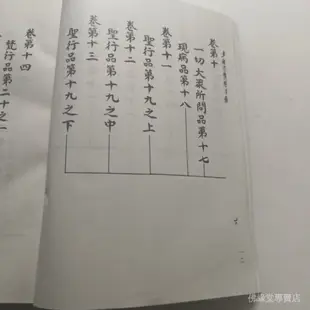 卷第十
一切大眾所問品第十七
現病品第十八
卷第十一
聖行品第十九之上
卷第十二
聖行品第十九之中
卷第十三
聖行品第十九之下
卷第十四
梵行品第二十之一
佛緣堂專賣店